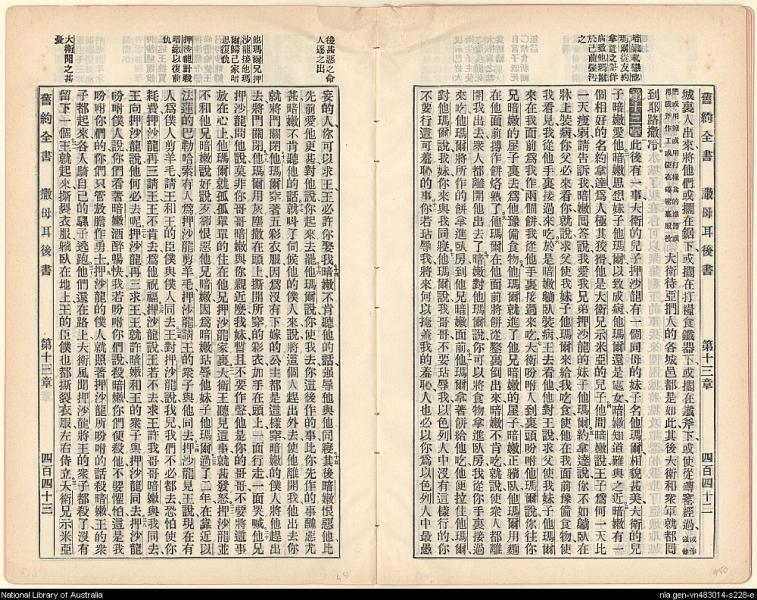 舊約全書 撒母耳後書 第十三章 四百四十二
城裏人出來將他們或擱在鋸下或擱在打糧食鐵器下或擱在鐵斧下或使從磚窰經過
大衛待亞捫人的各城邑都是如此其後大衛和衆軍就都回
到耶路撒冷
第十三章 此後有一事大衛的兒子押沙龍有一個同母的妹子名他瑪爾相貌甚美大衛的兒
子暗嫩愛他暗嫩思想妹子他瑪爾以致成病他瑪爾還是處女暗嫩知道難與之近暗嫩有一
個相好的名約拿達爲人極其狡猾他是大衛兄示米亞的兒子他問暗嫩說王子爲何一天比
一天瘦弱請告訴我暗嫩回答說我愛我兄弟押沙龍的妹子他瑪爾約拿達說你不如躺臥在
牀上裝病你父必來看你就說求父使我妹子他瑪爾來給我吃食使他在我面前豫備食物使
我看見我從他手裏接過來吃於是暗嫩躺臥裝病王去看他他對王說求父使我妹子他瑪爾
來在我面前爲我作兩個餅我從他手裏接過來吃大衛吩咐人到裏頭吩咐他瑪爾說你往你
兄暗嫩的屋子裏去爲他豫備食物他瑪爾就進了他兄暗嫩的屋子暗嫩正躺臥他瑪爾用麵
在他面前摶作餅烙熟了他瑪爾在他面前將餅從鏊裏倒出來暗嫩不肯吃就說使衆人都離
開我出去衆人都離開他出去了暗嫩對他瑪爾說你可以將食物拿進臥房我從你手裏接過
來吃他瑪爾將所作的餅拿進臥房到他兄暗嫩面前他瑪爾拿著餅給他吃他便拉住他瑪爾
對他瑪爾說我妹你來與我同寢他瑪爾說我哥哥不要玷辱我以色列人中沒有這樣行的你
不要行這可羞恥的事你若玷辱我我將來何以掩蓋我的羞恥人也必以你爲以色列人中最愚
後甚惡之命人逐之出
他瑪爾兄押沙龍接他瑪爾歸己家暗思復仇
押沙龍計殺暗嫩以復前仇
大衛聞之甚憂
妄的人你可以求王王必許你娶我暗嫩不肯聽他的話强辱他與他同寢其後暗嫩恨惡他比
先前愛他更甚對他說你起來去罷他瑪爾說你使我去你這後作的事比你先作的事醜惡尤
甚暗嫩不肯聽他的話就叫了伺候他的僕人來說將這個人趕出外去使他離開我他出去你
就將門關閉他瑪爾穿著五彩衣服因爲沒有下嫁的公主都是這樣穿暗嫩的僕人將他趕出
去將門關閉他瑪爾用灰塵撒在頭上撕開所穿的彩衣抱手在頭上一面行走一面哭喊他兄
押沙龍問他說莫非你哥哥暗嫩與你親近麽我妹暫且不要作聲他是你的哥哥不要將這事
放在心上他瑪爾就孤孤單單的住在他兄押沙龍家裏大衛王聽見這事就甚發怒押沙龍並
不和他兄暗嫩說好說歹押沙龍恨惡他兄暗嫩因爲暗嫩玷辱他妹子他瑪爾過了二年在靠近以
法蓮的巴勒哈索有人爲押沙龍剪羊毛押沙龍請王的衆子與他同去押沙龍見王說現在有
人爲僕人剪羊毛請王和王的臣僕與僕人同去王對押沙龍說我兒我們不必都去恐怕使你
耗費押沙龍再三請王王不肯去爲他祝福押沙龍說王若不去求王許我哥哥暗嫩與我同去
王向押沙龍說他何必去呢押沙龍再三求王王就許暗嫩和王的衆子與押沙龍同去押沙龍
吩咐僕人說你們看著暗嫩酒酣暢快我若吩咐你們說殺暗嫩你們便殺他不要懼怕這是我
吩咐你們的你們只管放膽作勇士押沙龍的僕人就照著押沙龍所吩咐的話殺暗嫩王的衆
子都起來各人騎自己的騾子逃跑他們還在路上大衛風聞押沙龍將王的衆子都殺了沒有
留下一個王就起來撕裂衣服躺臥在地上王的臣僕也都撕裂衣服左右侍立大衛兄示米亞
舊約全書 撒母耳後書 第十三章 四百四十三
National Library of Australia
nla.gen-vn483014-s228-e